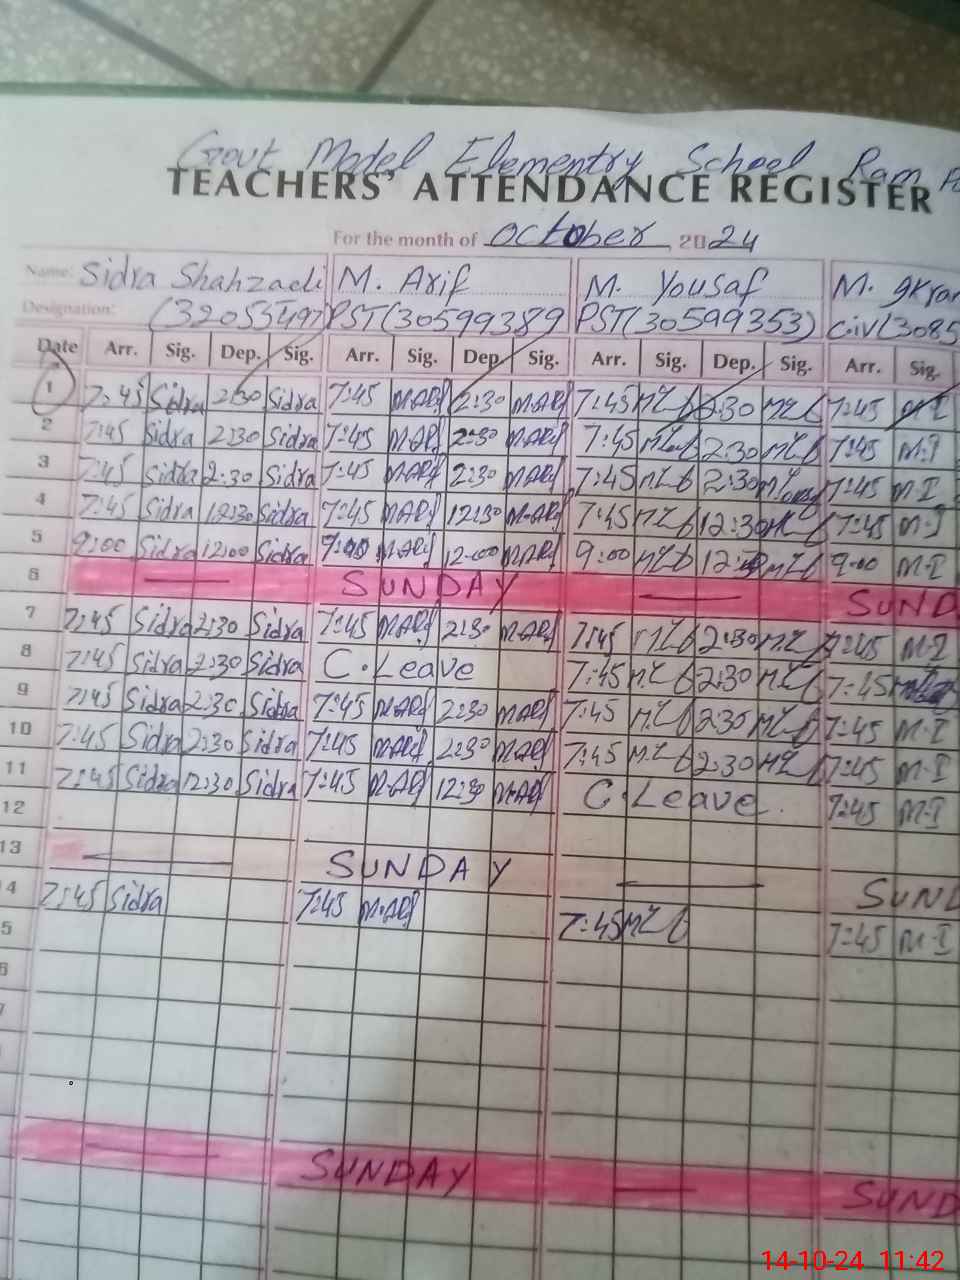 Govt Model Elementry School Ram
TEACHERS' ATTENDANCE REGISTER
For the month of October, 2024
Name: Sidra Shahzadi M. Arif M. Yousaf M.
Designation: (32055497) PST(30599389 PST(30599353) Civ(3085
Date Arr. Sig. Dep. Sig. Arr. Sig. Dep. Sig. Arr. Sig. Dep. Sig. Arr. Sig.
1 7:45 Sidra 2:30 Sidra 7:45 M.ARf 2:30 M.ARf 7:45 2:30 7:45 M-I
2 7:45 Sidra 2:30 Sidra 7:45 M.ARf 2:30 M.ARf 7:45 2:30 7:45 M-I
3 7:45 Sidra 2:30 Sidra 7:45 M.ARf 2:30 M.ARf 7:45 2:30 7:45 M-I
4 7:45 Sidra 12:30 Sidra 7:45 M.ARf 12:30 M.ARf 7:45 12:30 7:45 M-I
5 9:00 Sidra 12:00 Sidra 9:00 M.ARf 12:00 M.ARf 9:00 9:00 M-I
6 SUNDAY SUND
7 7:45 Sidra 2:30 Sidra 7:45 M.ARf 2:30 M.ARf 7:45 2:30 7:45 M-I
8 7:45 Sidra 2:30 Sidra C.Leave 7:45 2:30 7:45
9 7:45 Sidra 2:30 Sidra 7:45 M.ARf 2:30 M.ARf 7:45 2:30 7:45 M-I
10 7:45 Sidra 2:30 Sidra 7:45 M.ARf 2:30 M.ARf 7:45 2:30 7:45 M-I
11 7:45 Sidra 12:30 Sidra 7:45 M.ARf 12:30 M.ARf C.Leave. 7:45 M-I
12
13 SUNDAY SUND
4 7:45 Sidra 7:45 M.ARf 7:45 7:45 M-I
5
6
7
SUNDAY SUND
14-10-24 11:42